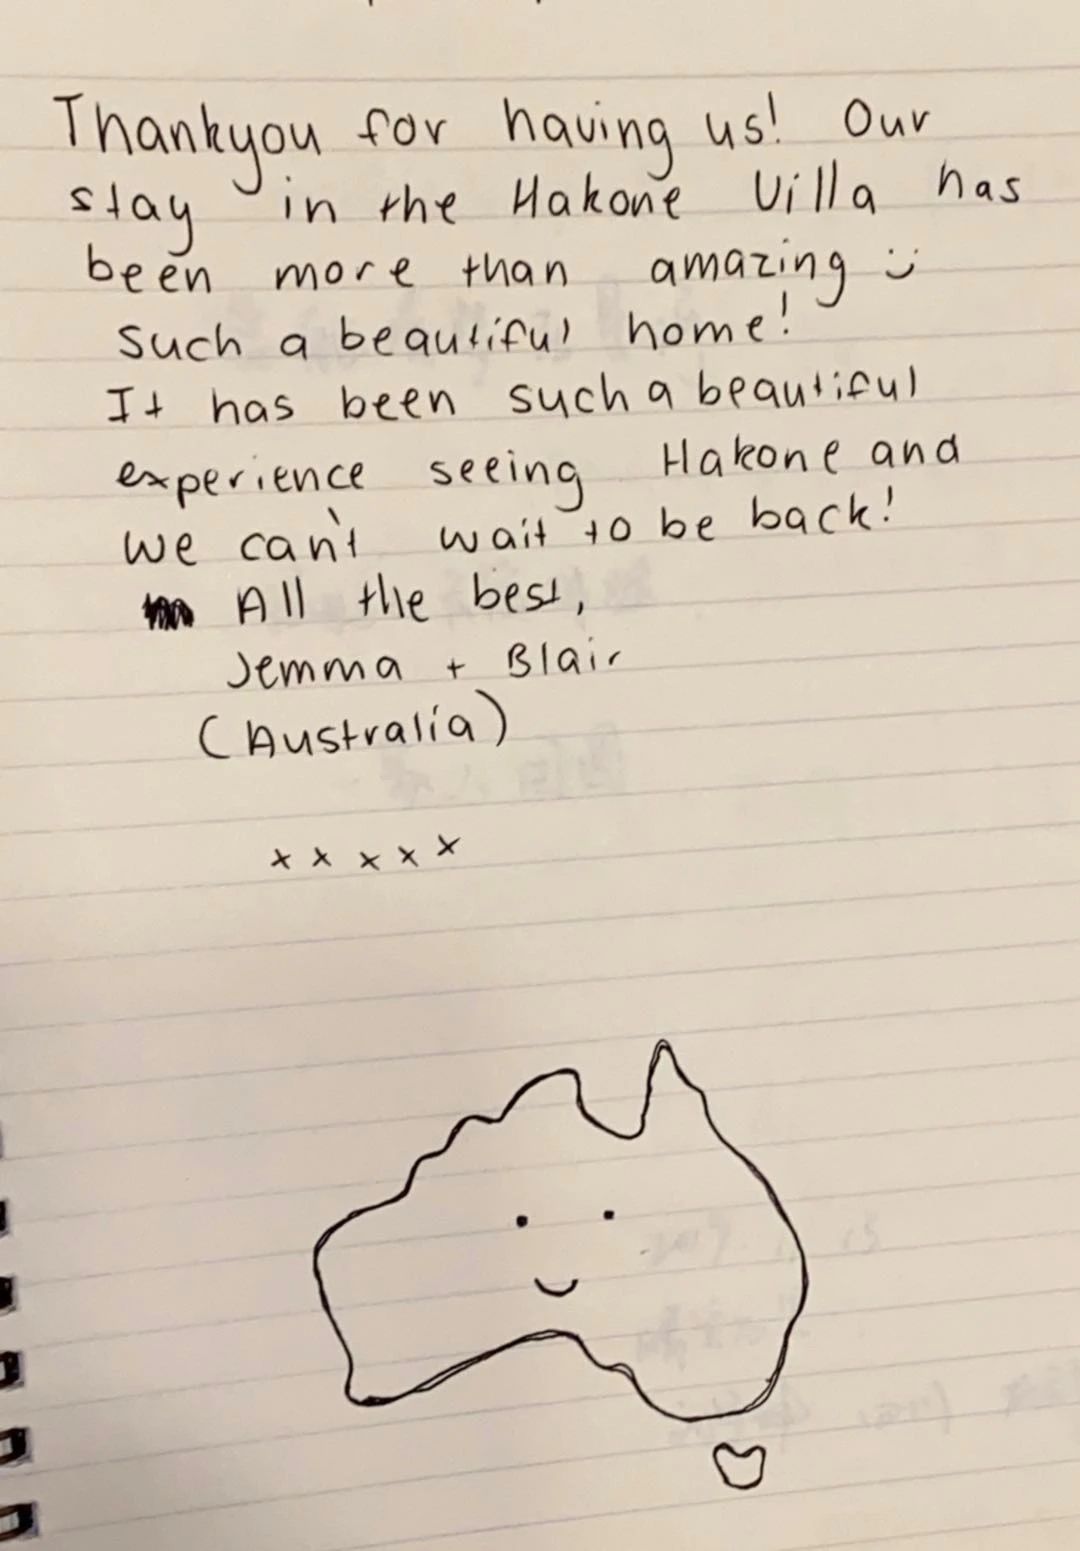 Thankyou for having us! Our
stay in the Hakone Villa has
been more than amazing :)
such a beautiful home!
It has been such a beautiful
experience seeing Hakone and
we can't wait to be back!
All the best,
Jemma + Blair
(Australia)
x x x x x